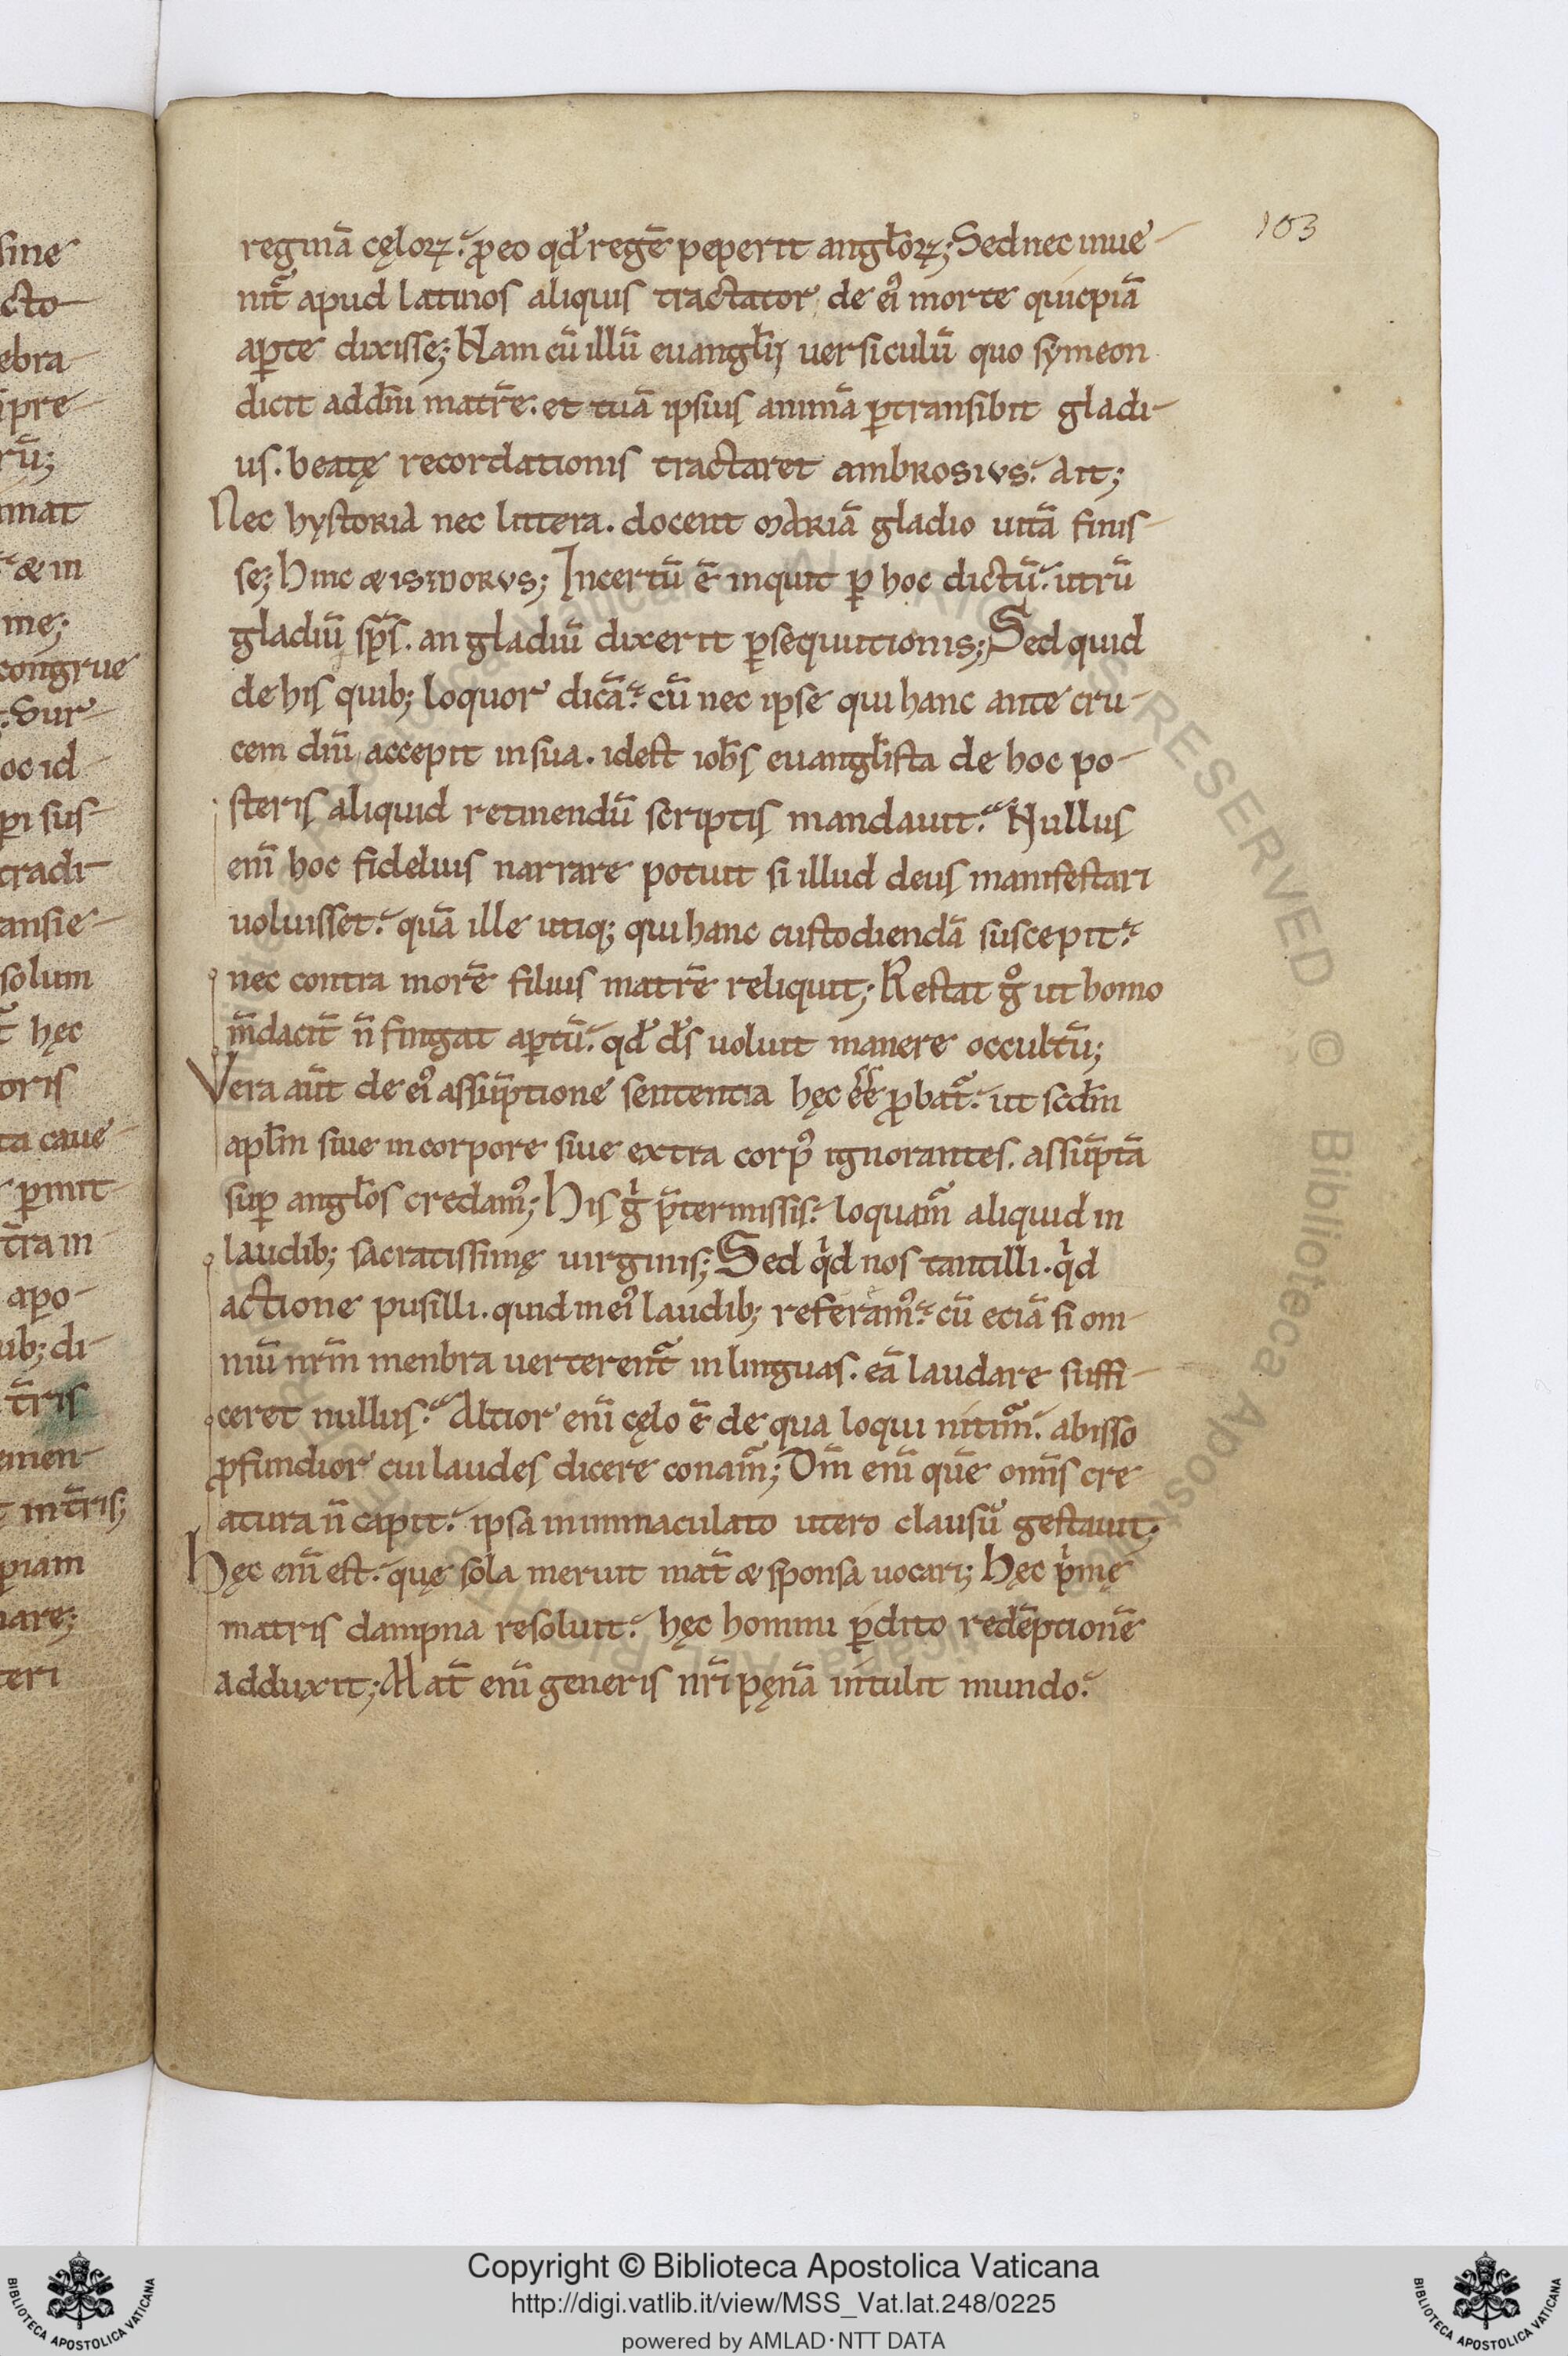 103
reginā cęloꝝ. ꝓ eo qđ regē peperit angłoꝝ; Sed nec inue-
nit᷑ apud latinos aliquis tractator de eiꝰ morte quicpiā
aꝑte dixisse; Nam cū illū euangłij uersiculū quo symeon
dicit ad dñi matrē. et tuā ipsius animā ꝑtransibit gladi-
us. beatę recordationis tractaret ambrosius. Ait;
Nec hystoria nec littera. docent mariā gladio uitā finis-
se; Hinc & isidorus; Incertū ē inquit ꝑ hoc dictū. utrū
gladiū sp̄s. an gladiū dixerit ꝑsequutionis; Sed quid
de his quib; loquor dicā. cū nec ipse qui hanc ante cru-
cem dñi accepit in sua. idest ioh̄s euangłista de hoc po-
steris aliquid retinendū scriptis mandauit. Nullus
eni̅ hoc fidelius narrare potuit si illud deus manifestari
uoluisset. quā ille utiq; qui hanc custodiendā suscepit.
nec contra morē filius matrē reliquit; Restat gͦ ut homo
m̄daciť n̄ fingat aꝑtū. qđ d̄s uoluit manere occultū;
Vera aūt de eiꝰ assūptione sententia hęc ēē ꝓbat᷑. ut scdm̄
apłm siue in corpore siue extra corpꝰ ignorantes. assūptā
suꝑ angłos credamꝰ; His gͥ p̄termissis. loquam᷑ aliquid in
laudib; sacratissimę uirginis; Sed qͥd nos tantilli. qͥd
actione pusilli. quid in eiꝰ laudib; referamꝰ. cū eciā si om-
niū nr̄m menbra uerterent᷑ in linguas. eā laudare suffi-
ceret nullus. Altior eni̅ cęlo ē de qua loqui nitim᷑. abisso
ꝓfundior cui laudes dicere conam᷑; Dm̄ eni̅ quē omīs cre-
atura n̄ capit. ipsa in inmaculato utero clausū gestauit;
Hęc eni̅ est. quę sola meruit mat̄ & sponsa uocari; Hęc pͥmę
matris dampna resoluit. hęc homini ꝑdito redēptionē
adduxit; Mat̄ eni̅ generis nr̄i pęnā intulit mundo.
Copyright © Biblioteca Apostolica Vaticana
http://digi.vatlib.it/view/MSS_Vat.lat.248/0225
powered by AMLAD·NTT DATA